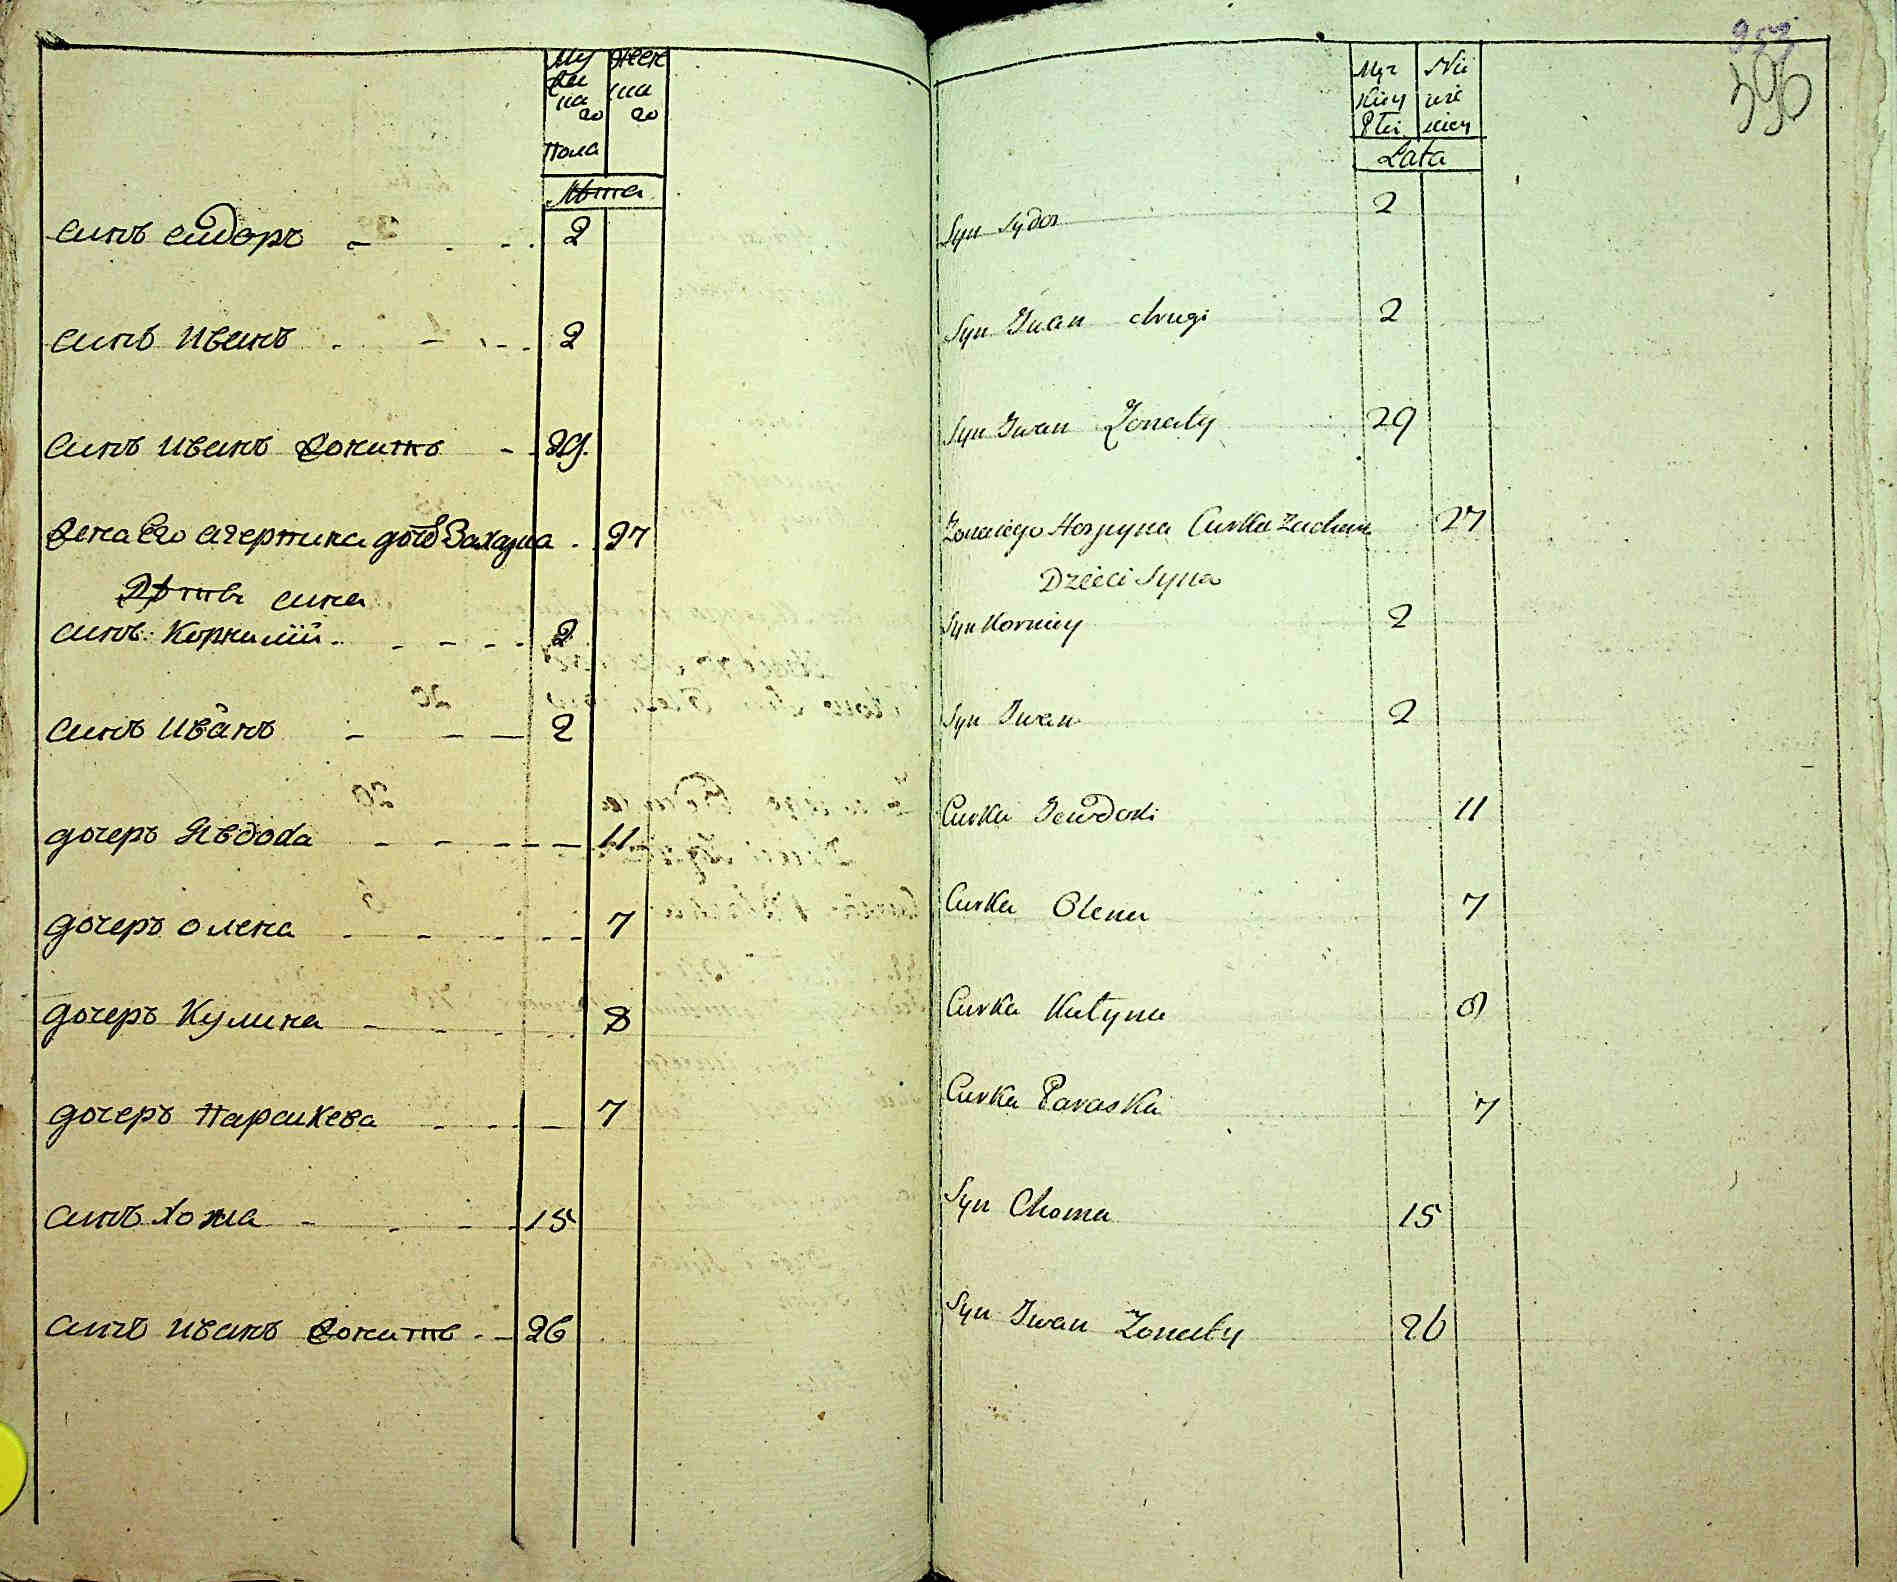 Му жеска
жеска го
го
пола
Лѣта
синъ сидоръ - - - 2
синъ Иванъ - - - 2
синъ Иванъ жонатъ - 29.
жена Его дочъ Захарна 27
Дѣтѣ сина
синъ Корнилій - - - 2
синъ Иванъ - - - 2
дочеръ Явдоха - - - 11
дочеръ олена - - - 7
дочеръ Кулина - - - 8
дочеръ Параскева - - - 7
синъ хома - - - 15
синъ Иванъ жонатъ - - 26
396
Męz Nie
kiey wie
Płci skiey
Lata
Syn Sydor 2
Syn Iwan drugi 2
Syn Iwan Zonaty 29
Zona iego Horpyna Curka Zachara 27
Dzieci Syna
Syn Korniey 2
Syn Iwan 2
Curka Jewdoki 11
Curka Olena 7
Curka Kulyna 8
Curka Paraska 7
Syn Choma 15
Syn Iwan Zonaty 26